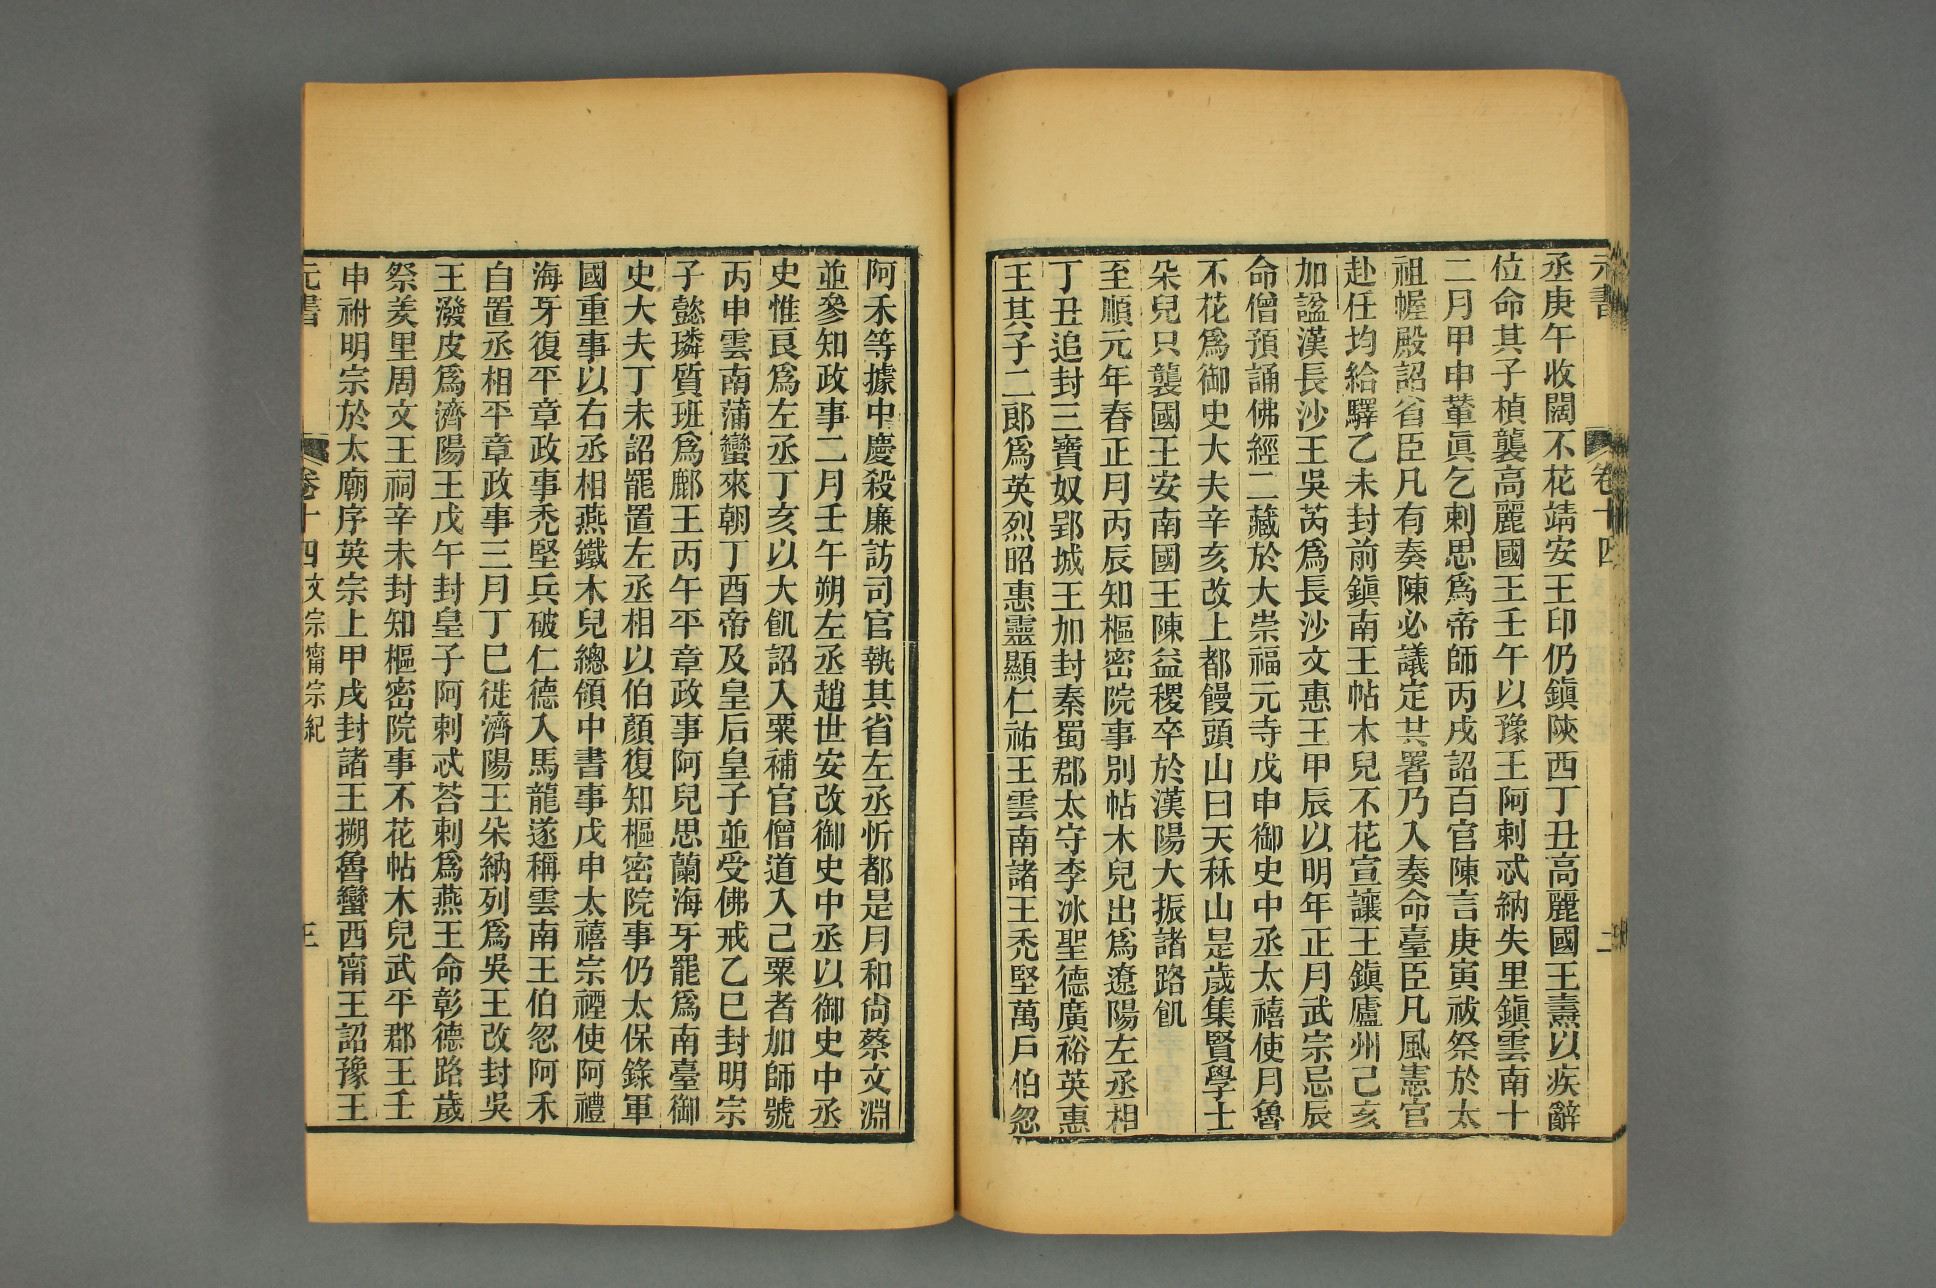 元書
卷十四
二
丞庚午收闊不花靖安王印仍鎮陝西丁丑高麗國王燾以疾辭
位命其子楨襲高麗國王壬午以豫王阿剌忒納失里鎮雲南十
二月甲申輦眞乞剌思爲帝師丙戌詔百官陳言庚寅祓祭於太
祖幄殿詔省臣凡有奏陳必議定共署乃入奏命臺臣凡風憲官
赴任均給驛乙未封前鎮南王帖木兒不花宣讓王鎮廬州己亥
加諡漢長沙王吳芮爲長沙文惠王甲辰以明年正月武宗忌辰
命僧預誦佛經二藏於大崇福元寺戊申御史中丞太禧使月魯
不花爲御史大夫辛亥改上都饅頭山曰天秝山是歲集賢學士
朵兒只襲國王安南國王陳益稷卒於漢陽大振諸路飢
至順元年春正月丙辰知樞密院事別帖木兒出爲遼陽左丞相
丁丑追封三寶奴郢城王加封秦蜀郡太守李冰聖德廣裕英惠
王其子二郎爲英烈昭惠靈顯仁祐王雲南諸王禿堅萬戶伯忽
阿禾等據中慶殺廉訪司官執其省左丞忻都是月和尙蔡文淵
並參知政事二月壬午朔左丞趙世安改御史中丞以御史中丞
史惟良爲左丞丁亥以大飢詔入粟補官僧道入己粟者加師號
丙申雲南蒲蠻來朝丁酉帝及皇后皇子並受佛戒乙巳封明宗
子懿璘質班爲鄜王丙午平章政事阿兒思蘭海牙罷爲南臺御
史大夫丁未詔罷置左丞相以伯顏復知樞密院事仍太保錄軍
國重事以右丞相燕鐵木兒總領中書事戊申太禧宗禋使阿禮
海牙復平章政事禿堅兵破仁德入馬龍遂稱雲南王伯忽阿禾
自置丞相平章政事三月丁巳徙濟陽王朵納列爲吳王改封吳
王潑皮爲濟陽王戊午封皇子阿剌忒荅剌爲燕王命彰德路歲
祭羑里周文王祠辛未封知樞密院事不花帖木兒武平郡王壬
申祔明宗於太廟序英宗上甲戌封諸王搠魯蠻西甯王詔豫王
元書
卷十四文宗甯宗紀
三